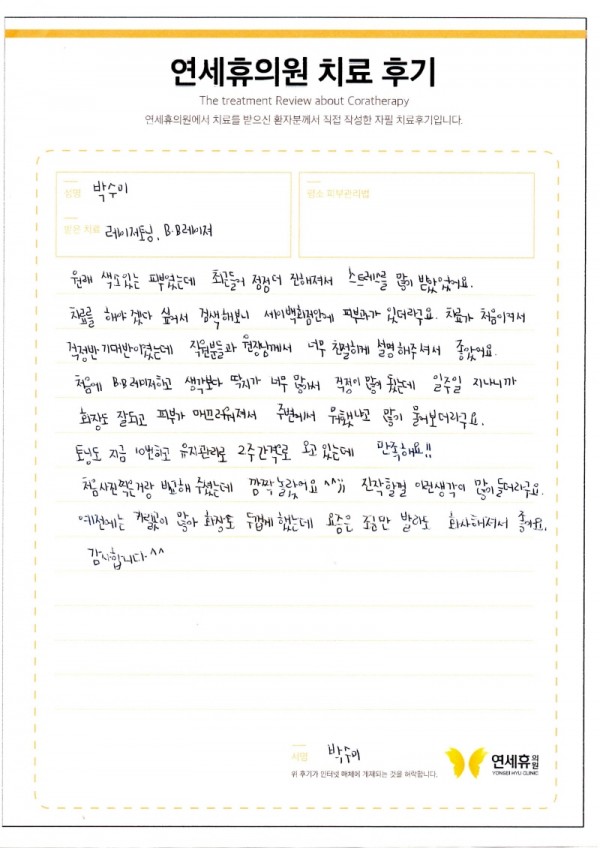 연세휴의원 치료 후기
The treatment Review about Coratherapy
연세휴의원에서 치료를 받으신 환자분께서 직접 작성한 자필 치료후기입니다.
성명 박수미
평소 피부관리법
받은 치료 레이저토닝, B.B레이저
원래 색소있는 피부였는데 최근들어 점점더 진해져서 스트레스를 많이 받았었어요.
치료를 해야겠다 싶어서 검색해보니 세이백화점안에 피부과가 있더라구요. 치료가 처음이여서
걱정반기대반이였는데 직원분들과 원장님께서 너무 친절하게 설명해주셔서 좋았어요.
처음에 B.B레이저하고 생각보다 딱지가 너무 많아서 걱정이 많이 됐는데 일주일 지나니까
화장도 잘되고 피부가 매끄러워져서 주변에서 뭐했냐고 많이 물어보더라구요.
토닝도 지금 10번하고 유지관리로 2주간격으로 오고있는데 만족해요!!
처음사진찍은거랑 비교해 주셨는데 깜짝놀랐어요 ^^;; 진작할껄 이런생각이 많이들더라구요.
예전에는 가릴곳이 많아 화장도 두껍게했는데 요즘은 조금만 발라도 화사해져서 좋아요.
감사합니다.^^
서명 박수미
위 후기가 인터넷 매체에 게재되는 것을 허락합니다.
연세휴의원
YONSEI HYU CLINIC